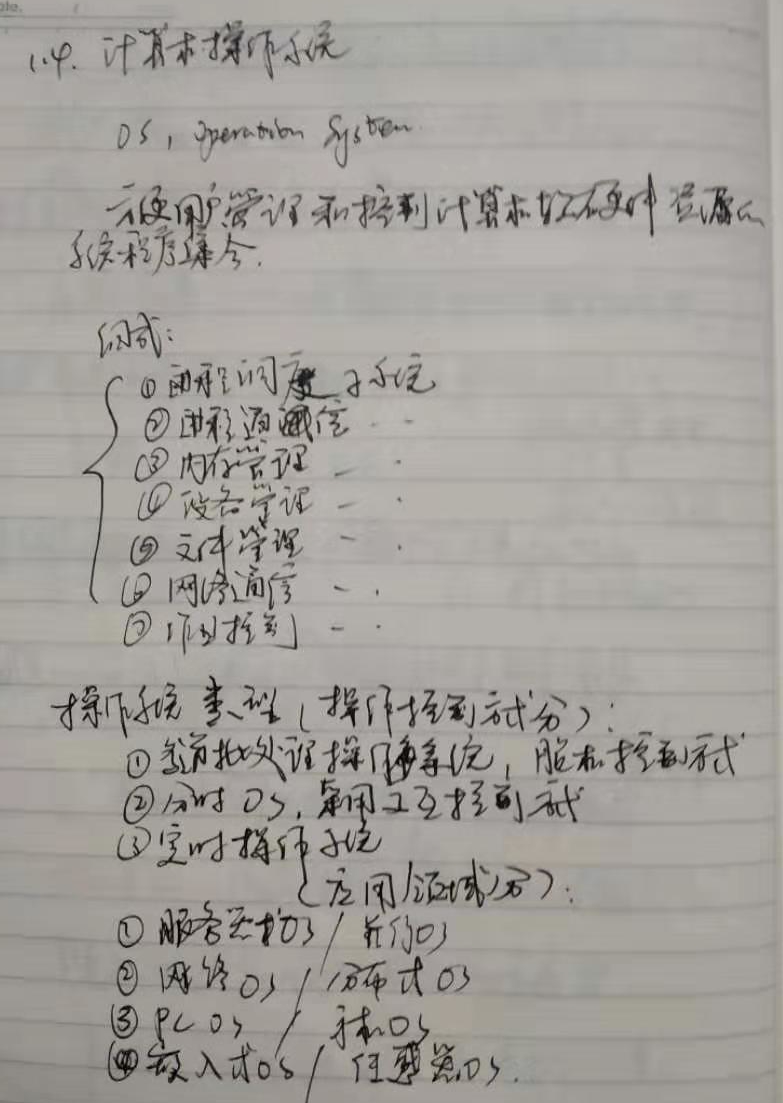 1.4. 计算机操作系统
OS, Operation System.
方便用户管理和控制计算机软硬件资源的
系统程序集合.
组成:
① 进程调度子系统
② 进程通信 - -
③ 内存管理 - -
④ 设备管理 - -
⑤ 文件管理 - -
⑥ 网络通信 - -
⑦ 作业控制 - -
操作系统类型(操作控制方式分):
① 多道批处理操作系统, 脱机控制方式
② 分时OS, 采用交互控制方式
③ 实时操作系统
(应用领域分):
① 服务器OS / 并行OS
② 网络OS / 分布式OS
③ PC OS / 手机OS
④ 嵌入式OS / 传感器OS.